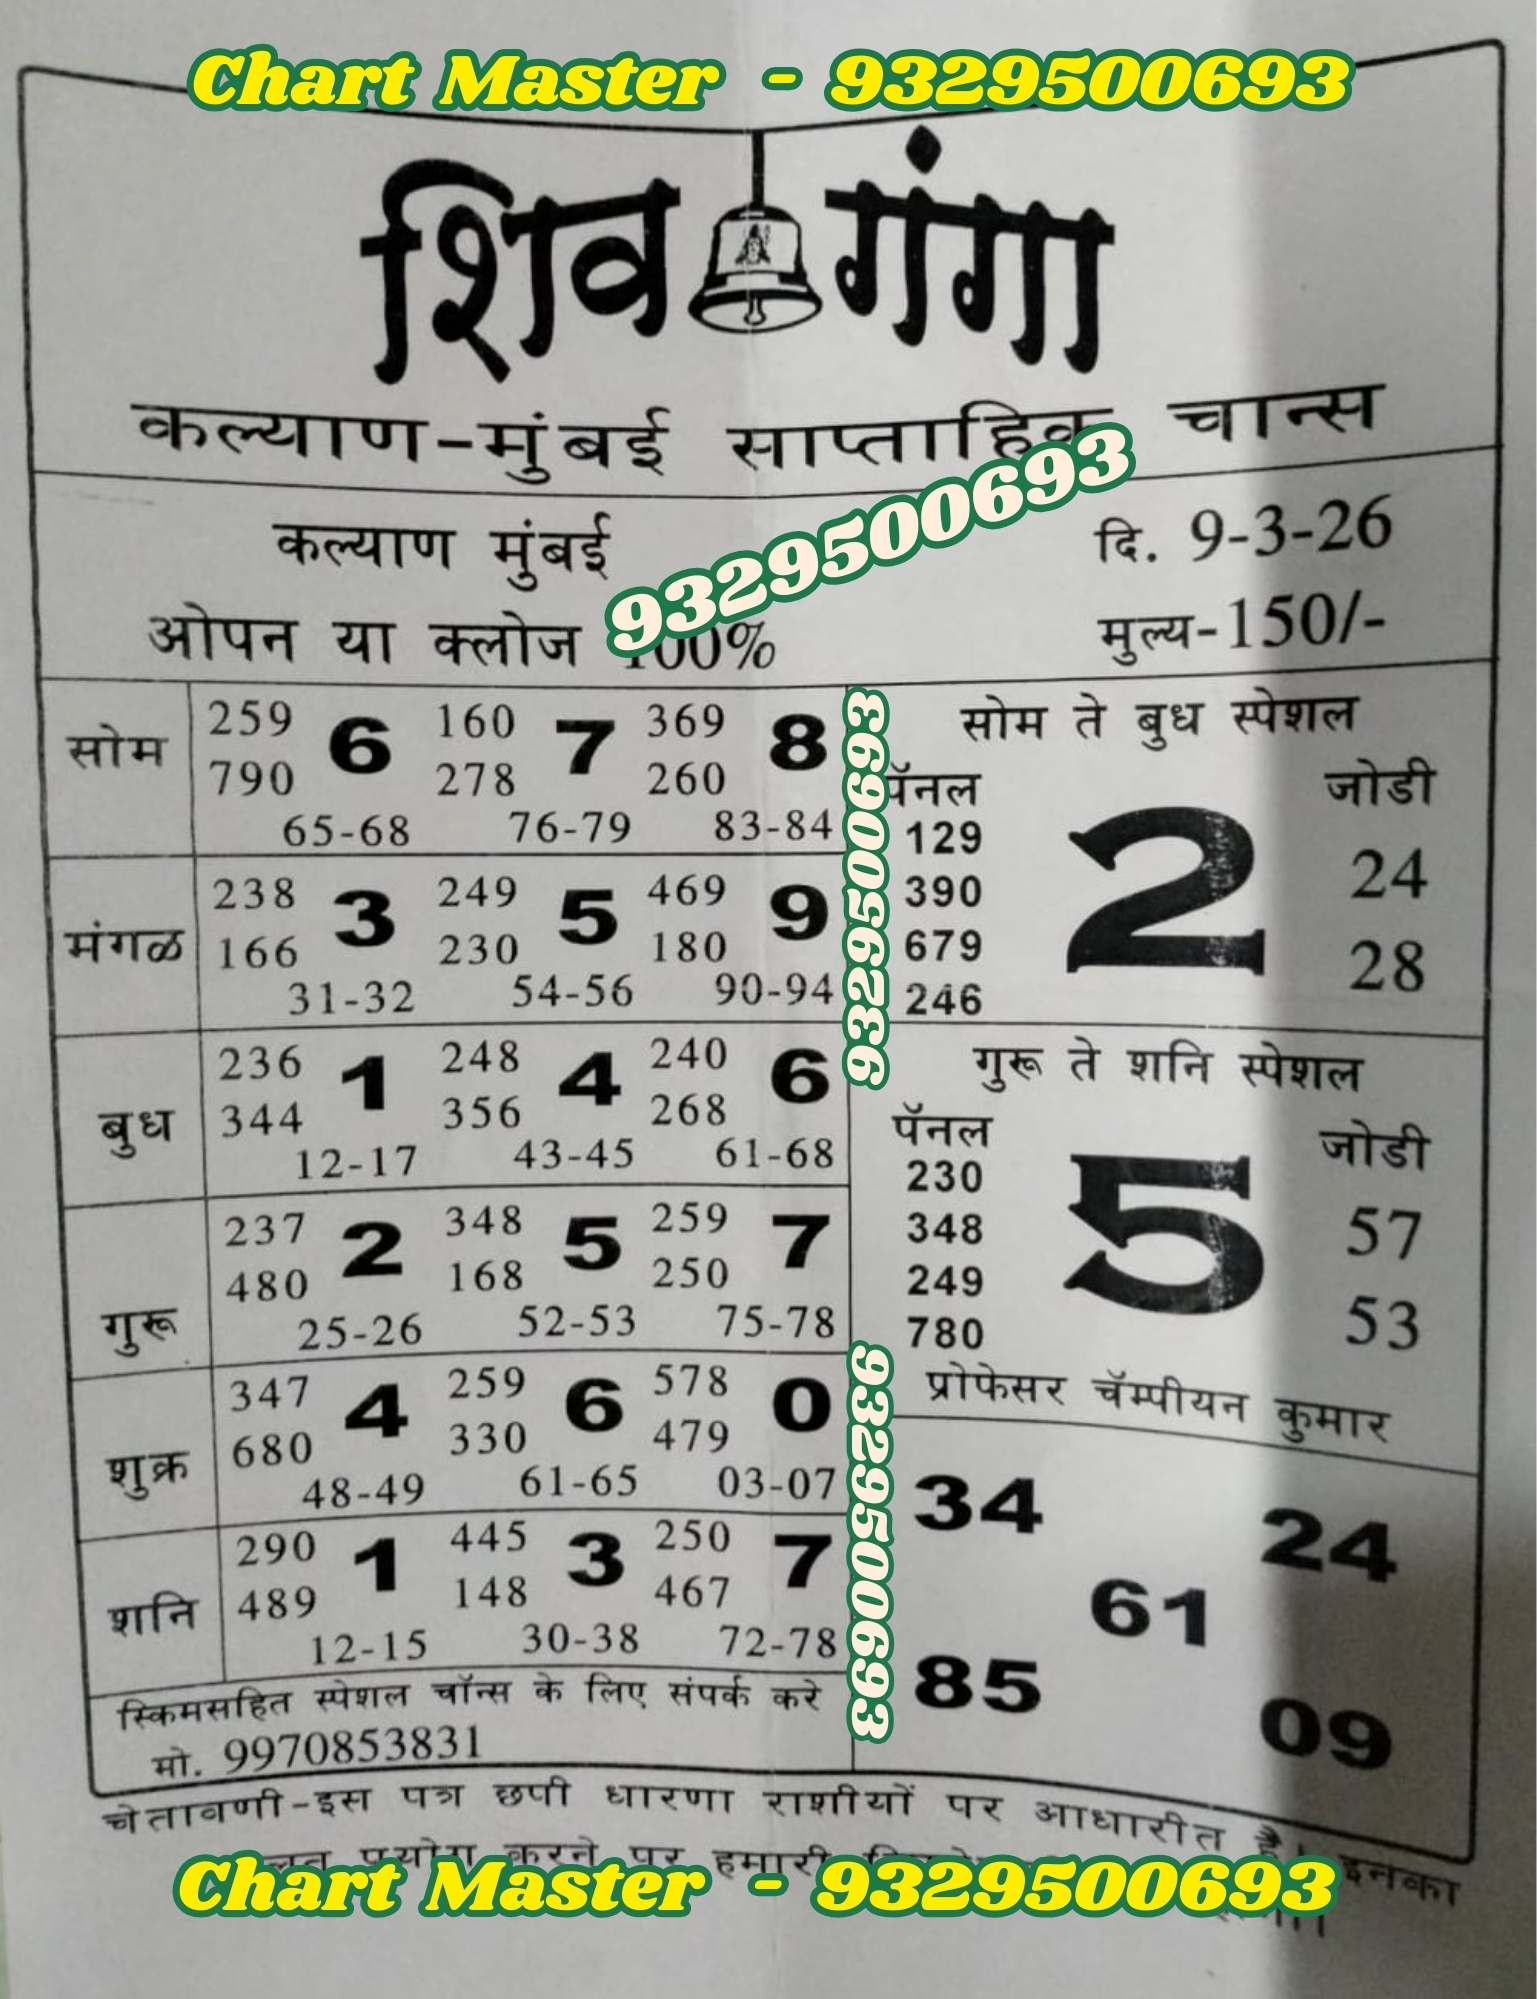 Chart Master - 9329500693
शिव गंगा
कल्याण-मुंबई साप्ताहिक चान्स
कल्याण मुंबई
दि. 9-3-26
ओपन या क्लोज 100%
मुल्य-150/-
9329500693
सोम
259 6 160 7 369 8
790 278 260
65-68 76-79 83-84
मंगळ
238 3 249 5 469 9
166 230 180
31-32 54-56 90-94
बुध
236 1 248 4 240 6
344 356 268
12-17 43-45 61-68
गुरू
237 2 348 5 259 7
480 168 250
25-26 52-53 75-78
शुक्र
347 4 259 6 578 0
680 330 479
48-49 61-65 03-07
शनि
290 1 445 3 250 7
489 148 467
12-15 30-38 72-78
9329500693
9329500693
सोम ते बुध स्पेशल
पॅनल जोडी
129
390
679
246
2
24
28
गुरू ते शनि स्पेशल
पॅनल जोडी
230
348
249
780
5
57
53
प्रोफेसर चॅम्पीयन कुमार
34 24
61
85 09
स्किमसहित स्पेशल चॉन्स के लिए संपर्क करे
मो. 9970853831
चेतावणी-इस पत्र छपी धारणा राशीयों पर आधारीत है। इनका
करने पर हमारी
Chart Master - 9329500693